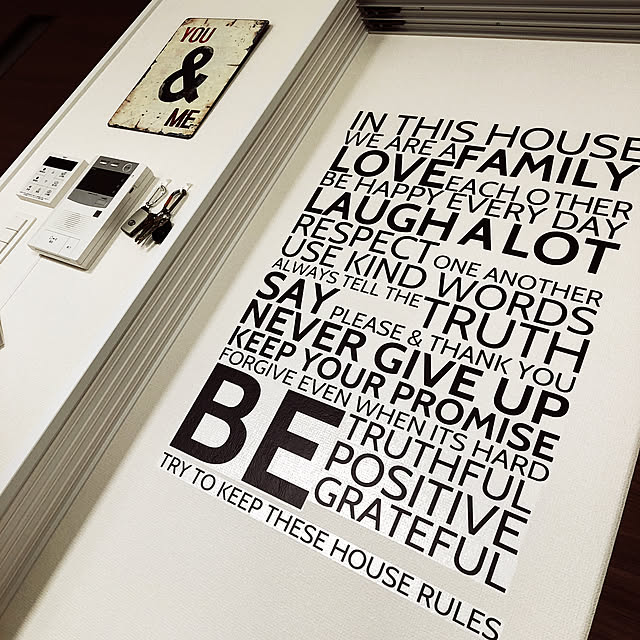 YOU
&
ME
IN THIS HOUSE
WE ARE A FAMILY
LOVE EACH OTHER
BE HAPPY EVERY DAY
LAUGH A LOT
RESPECT ONE ANOTHER
USE KIND WORDS
ALWAYS TELL THE TRUTH
SAY PLEASE & THANK YOU
NEVER GIVE UP
KEEP YOUR PROMISE
FORGIVE EVEN WHEN ITS HARD
BE TRUTHFUL
POSITIVE
GRATEFUL
TRY TO KEEP THESE HOUSE RULES